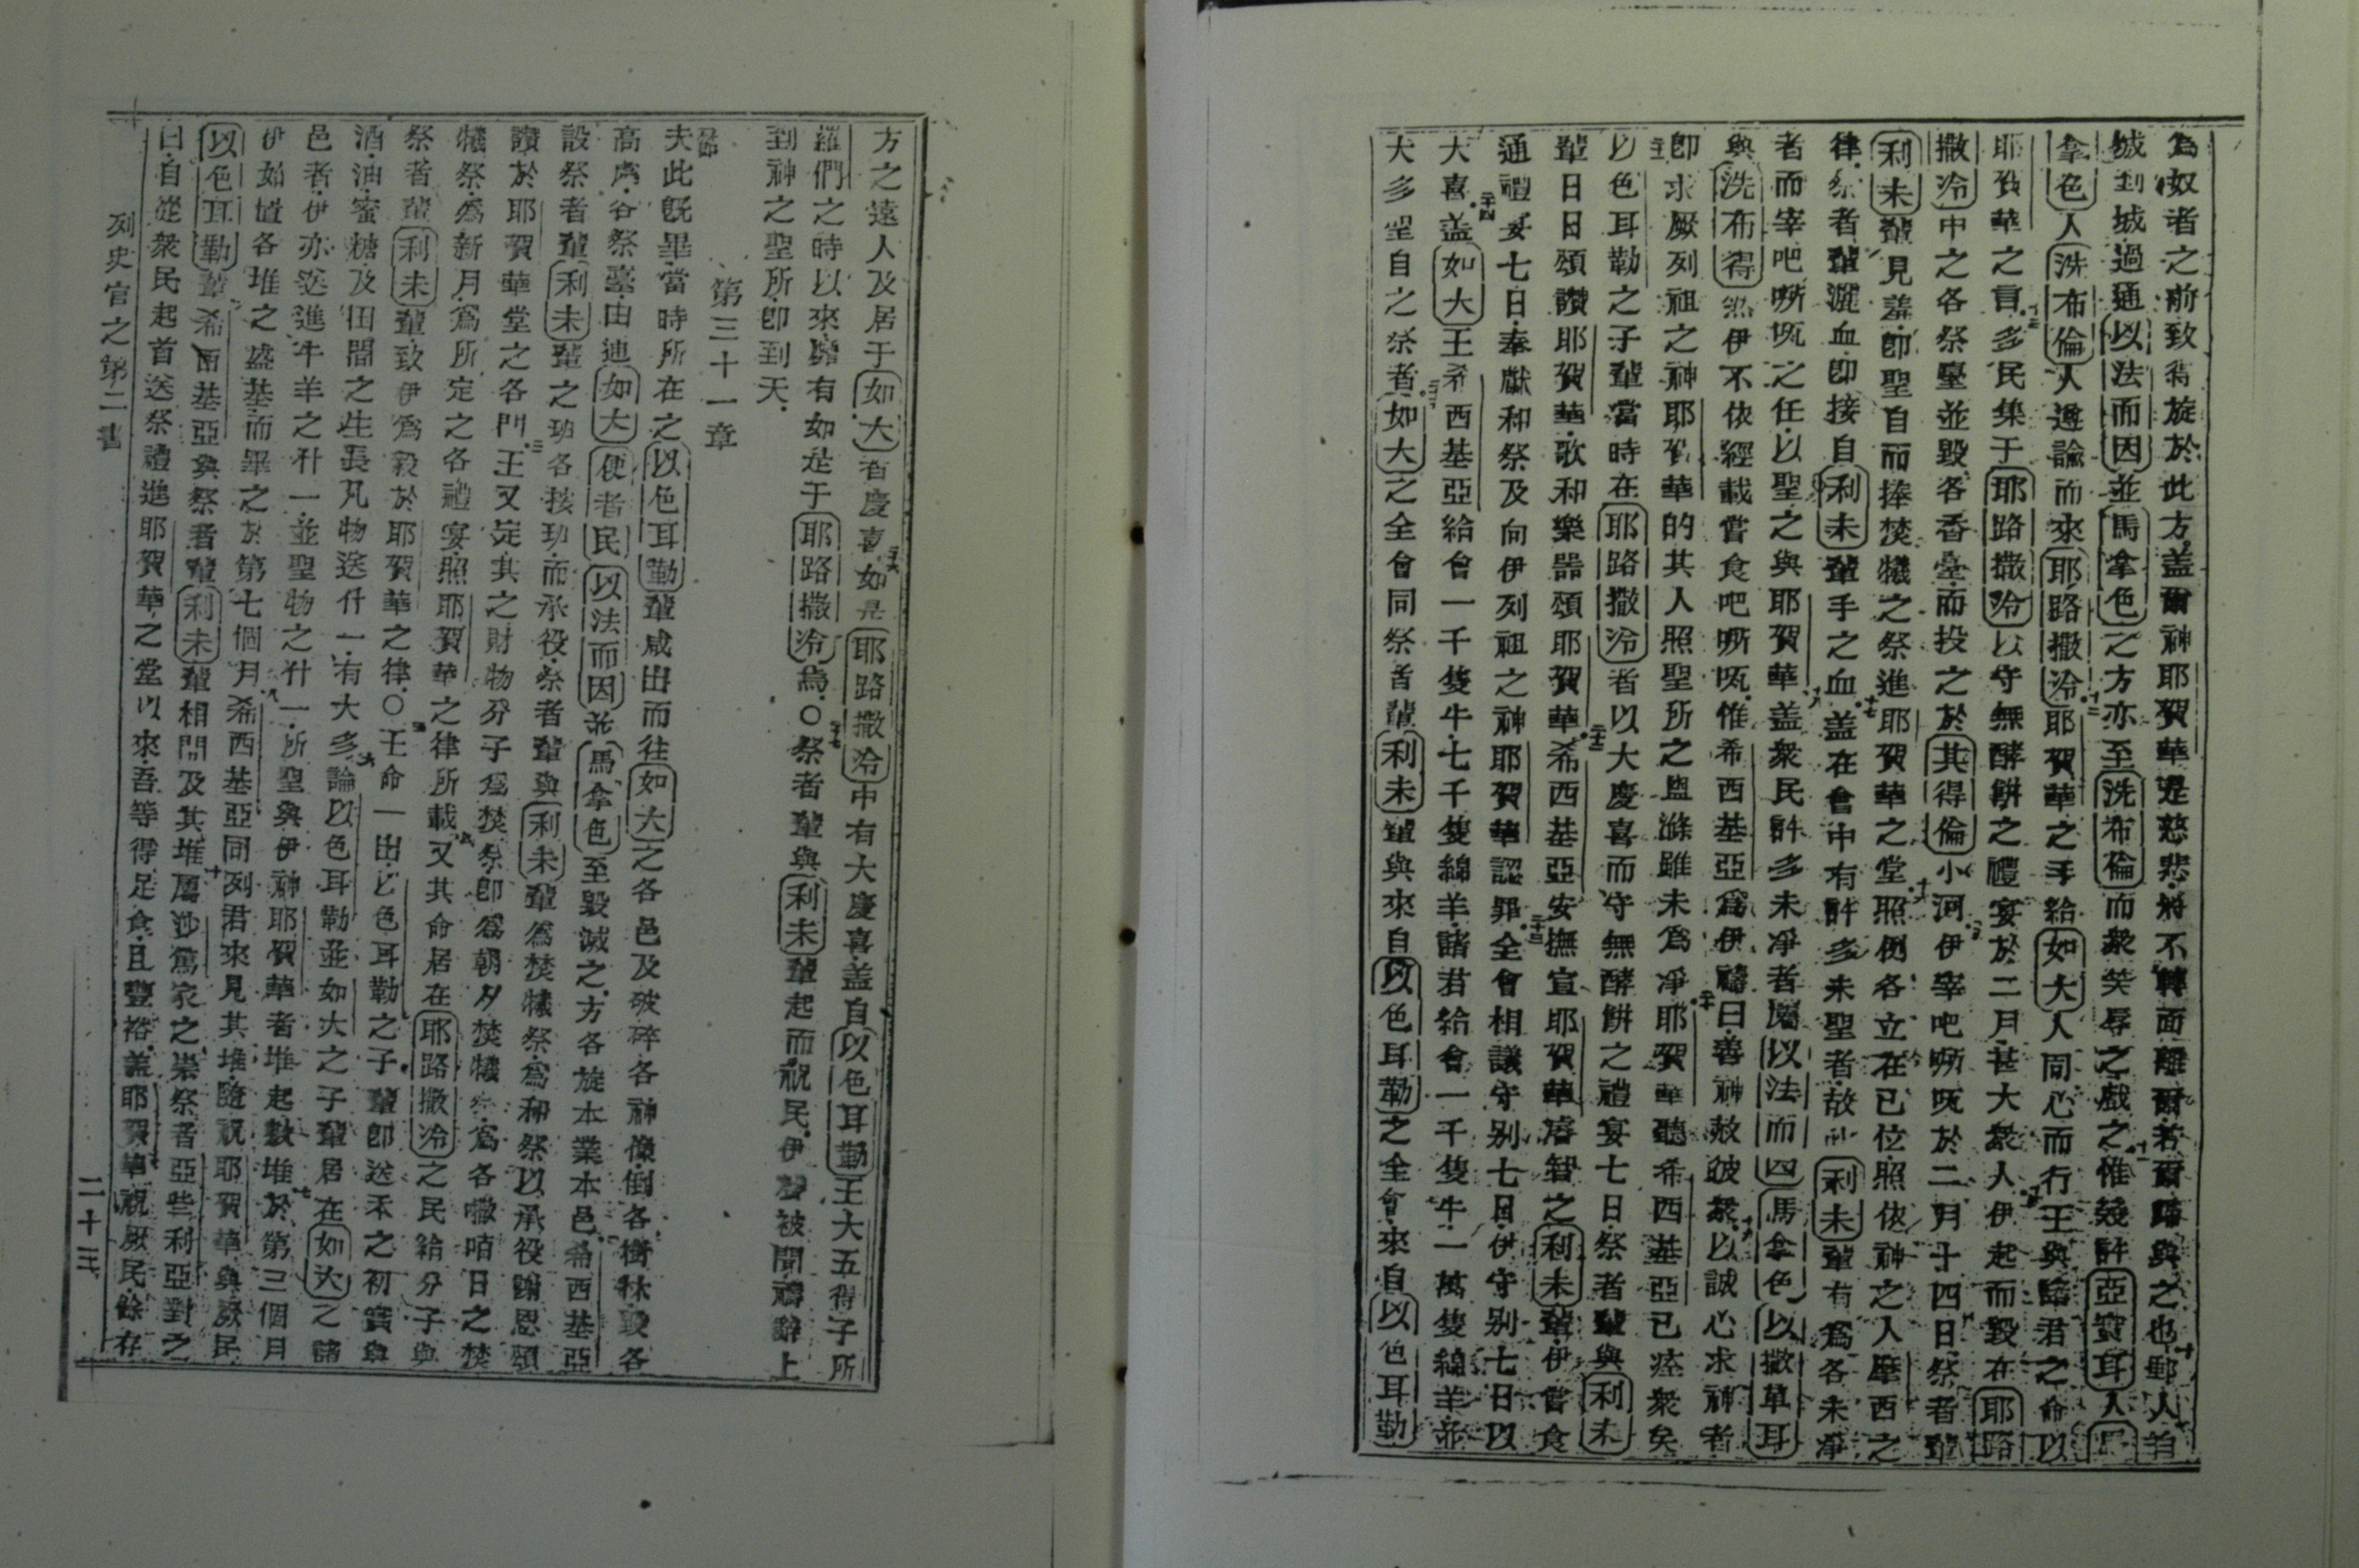 為奴者之前致得旋於此方蓋爾神耶賀華是慈悲將不轉面離爾若爾歸與之也郵人自
城到城過通以法而因並馬拿色之方亦至洗布倫而衆笑辱之戲之惟幾許亞實耳人馬
拿色人洗布倫人遵諭而來耶路撒冷耶賀華之手給如大人同心而行王與諸君之命以
耶賀華之言多民集于耶路撒冷以守無酵餅之禮宴於二月甚大衆人伊起而毀在耶路
撒冷中之各祭臺並毀各香臺而投之於其得倫小河伊宰吧嘶㕸於二月十四日祭者輩
利未輩見羞卽聖自而捧焚犧之祭進耶賀華之堂照例各立在已位照依神之人摩西之
律祭者輩灑血卽接自利未輩手之血蓋在會中有許多未聖者故此利未輩有爲各未凈
者而宰吧嘶㕸之任以聖之與耶賀華蓋衆民許多未凈者屬以法而因馬拿色以撒革耳
與洗布得然伊不依經載嘗食吧嘶㕸惟希西基亞爲伊禱曰善神赦彼衆以誠心求神者
卽求厥列祖之神耶賀華的其人照聖所之盥滌雖未爲凈耶賀華聽希西基亞已痊衆矣
以色耳勒之子輩當時在耶路撒冷者以大慶喜而守無酵餅之禮宴七日祭者輩與利未
輩日日頌讚耶賀華歌和樂器頌耶賀華希西基亞安撫宣耶賀華睿智之利未輩伊嘗食
通禮宴七日奉獻和祭及向伊列祖之神耶賀華認罪全會相議守别七日伊守别七日以
大喜蓋如大王希西基亞給會一千隻牛七千隻綿羊諸君給會一千隻牛一萬隻綿羊並
大多聖自之祭者如大之全會同祭者輩利未輩與來自以色耳勒之全會來自以色耳勒
方之遠人及居于如大者慶喜如是耶路撒冷中有大慶喜蓋自以色耳勒王大五得子所
羅們之時以來罷有如是于耶路撒冷焉○祭者輩與利未輩起而祝民伊聲被聞禱辭上
到神之聖所卽到天
第三十一章
夫此旣畢當時所在之以色耳勒輩咸出而往如大之各邑及破碎各神像倒各樹林毀各
高處各祭臺由進如大便者民以法而因並馬拿色至毀滅之方各旋本業本邑希西基亞
設祭者輩利未輩之班各按班而承役祭者輩與利未輩爲焚犧祭爲和祭以承役謝恩頌
讚於耶賀華堂之各門王又定其之財物分子爲焚祭卽爲朝夕焚犧祭爲各㘔咟日之焚
犧祭爲新月爲所定之各禮宴照耶賀華之律所載又其命居在耶路撒冷之民給分子與
祭者輩利未輩致伊爲毅於耶賀華之律○王命一出以色耳勒之子輩卽送禾之初實與
酒油蜜糖及田間之生長凡物送什一有大多論以色耳勒並如大之子輩居在如大之諸
邑者伊亦送進牛羊之什一並聖物之什一所聖與伊神耶賀華者堆起數堆於第三個月
伊如置各堆之盛基而畢之於第七個月希西基亞同列君來見其堆隨祝耶賀華與厥民
以色耳勒輩希西基亞與祭者輩利未輩相問及其堆屬沙篤家之崇祭者亞些利亞對之
曰自從衆民起首送祭禮進耶賀華之堂以來吾等得足食且豐裕蓋耶賀華祝厥民餘存
列史官之第二書
二十三